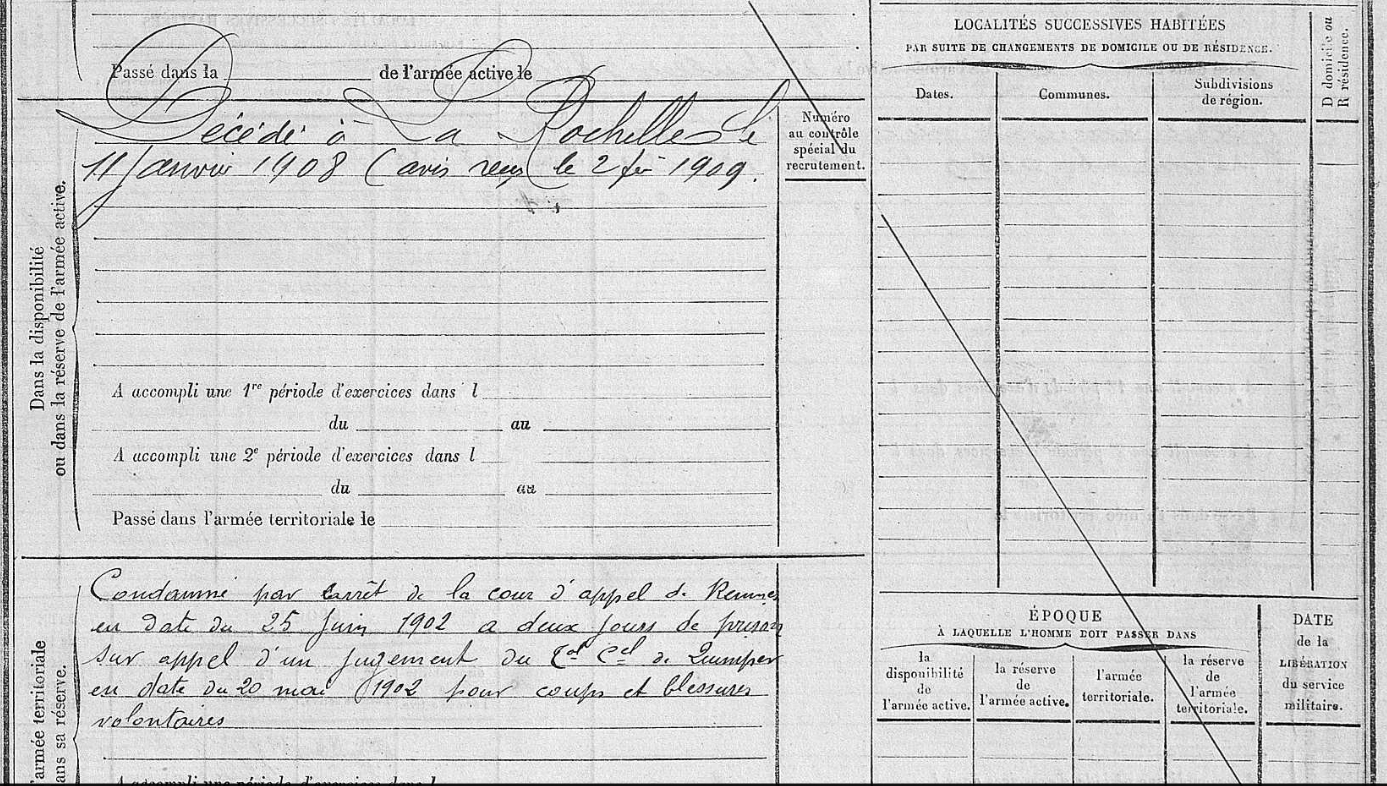 Passé dans la de l'armée active le
Décédé à La Rochelle le
11 Janvier 1908 (avis reçu le 2 fév 1909.
Numéro
au contrôle
spécial du
recrutement.
Dans la disponibilité
ou dans la réserve de l'armée active.
A accompli une 1re période d'exercices dans l
du au
A accompli une 2e période d'exercices dans l
du au
Passé dans l'armée territoriale le
Condamné par arrêt de la cour d'appel de Rennes
en date du 25 Juin 1902 a deux jours de prison
sur appel d'un jugement du Cel de Quimper
en date du 20 mai 1902 pour coups et blessures
volontaires
l'armée territoriale
dans sa réserve.
A accompli une période d'exercices dans l
LOCALITÉS SUCCESSIVES HABITÉES
PAR SUITE DE CHANGEMENTS DE DOMICILE OU DE RÉSIDENCE.
Dates. Communes. Subdivisions
de région.
D domicile ou
R résidence.
ÉPOQUE
À LAQUELLE L'HOMME DOIT PASSER DANS
la
disponibilité
de
l'armée active.
la réserve
de
l'armée active.
l'armée
territoriale.
la réserve
de
l'armée
territoriale.
DATE
de la
LIBÉRATION
du service
militaire.